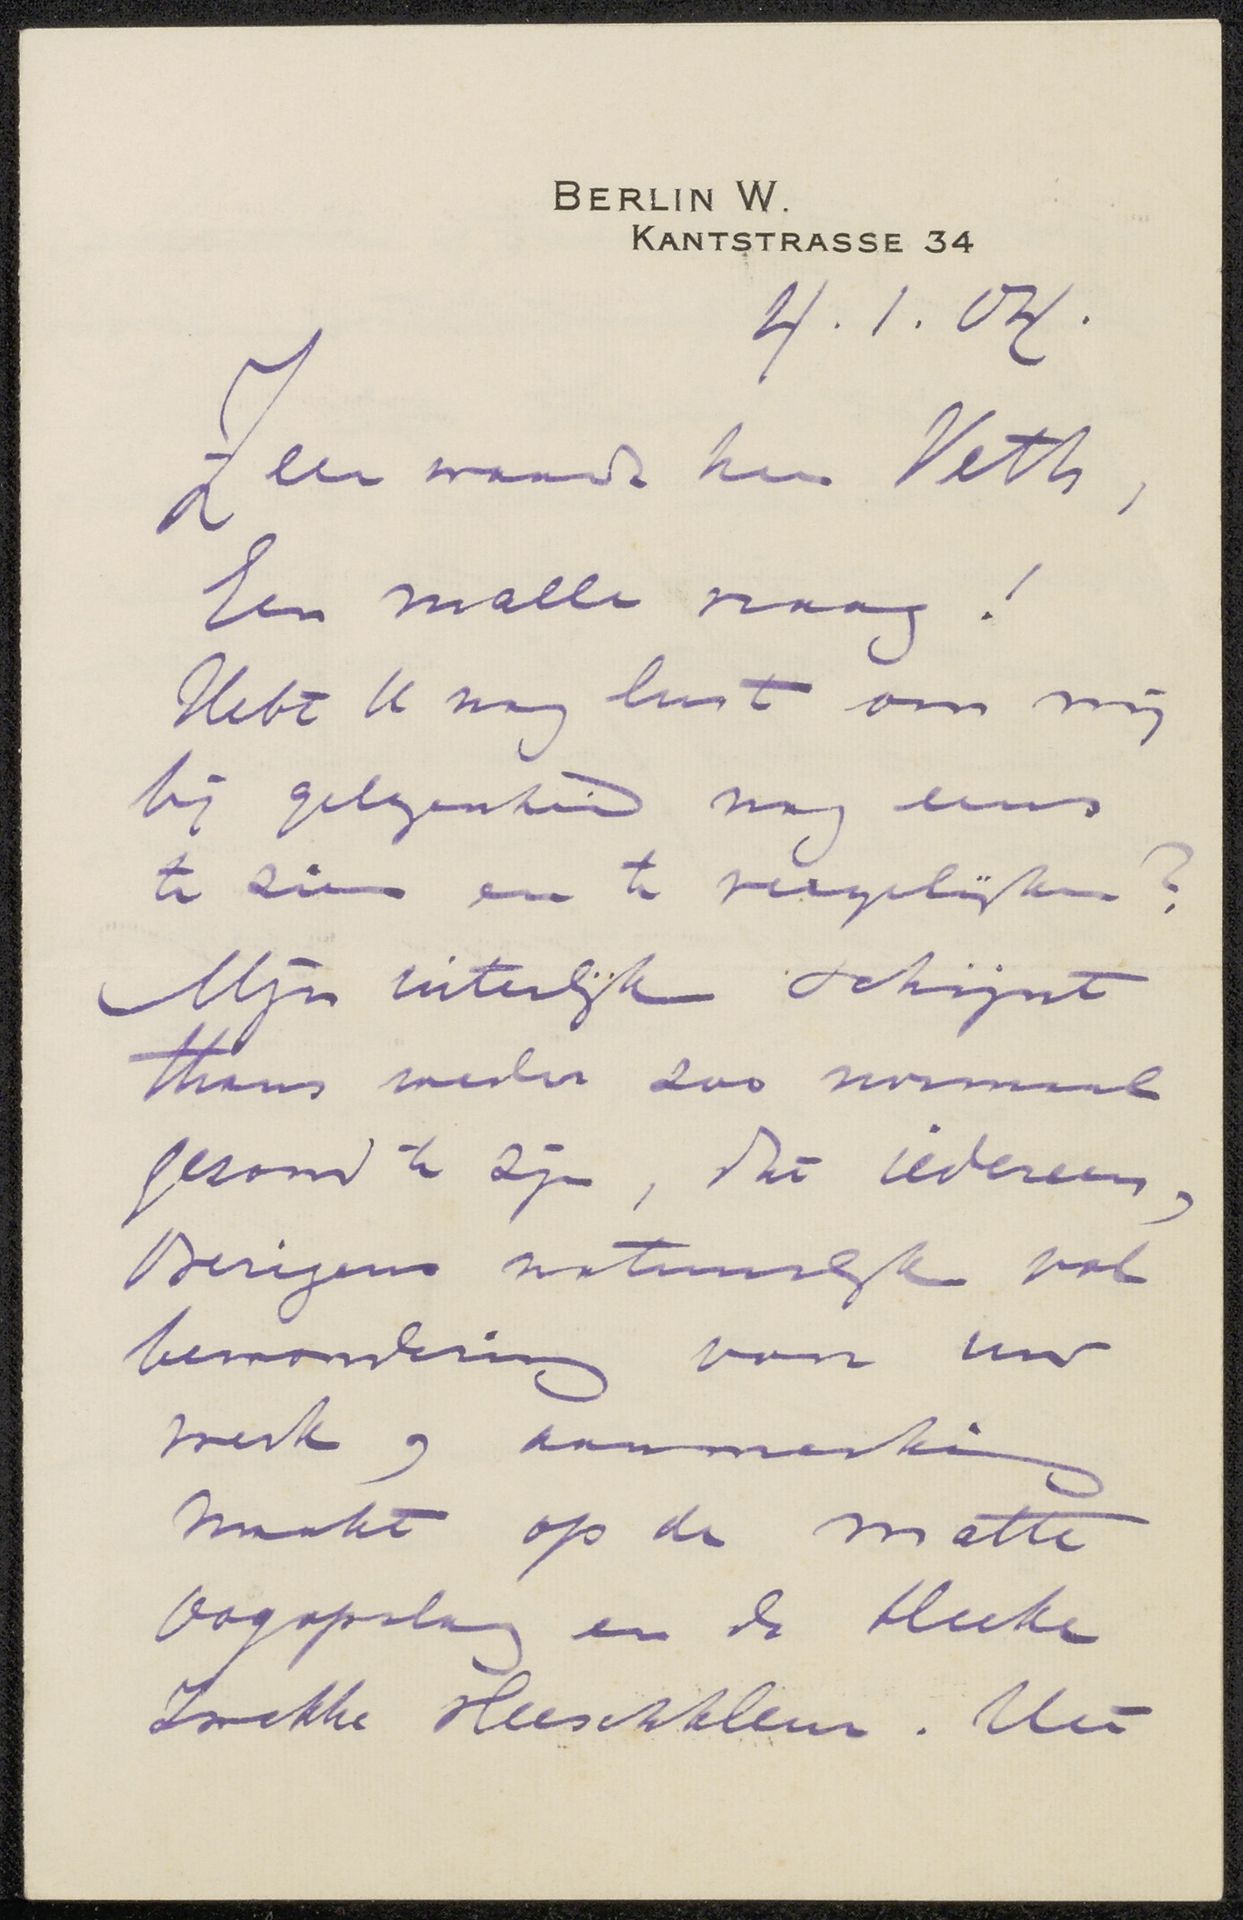 BERLIN W.
KANTSTRASSE 34
4.1.04.
Zeer waarde heer Veth,
Een malle vraag!
Hebt U nog lust om mij
bij gelegenheid nog eens
te zien en te vergelijken?
Mijn uiterlijk schijnt
thans weder zoo normaal
gezond te zijn, dat iedereen,
overigens natuurlijk vol
bewondering voor uw
werk, aanmerking
maakt op de matte
oogopslag en de bleeke
zwakke vleeschkleur. Het